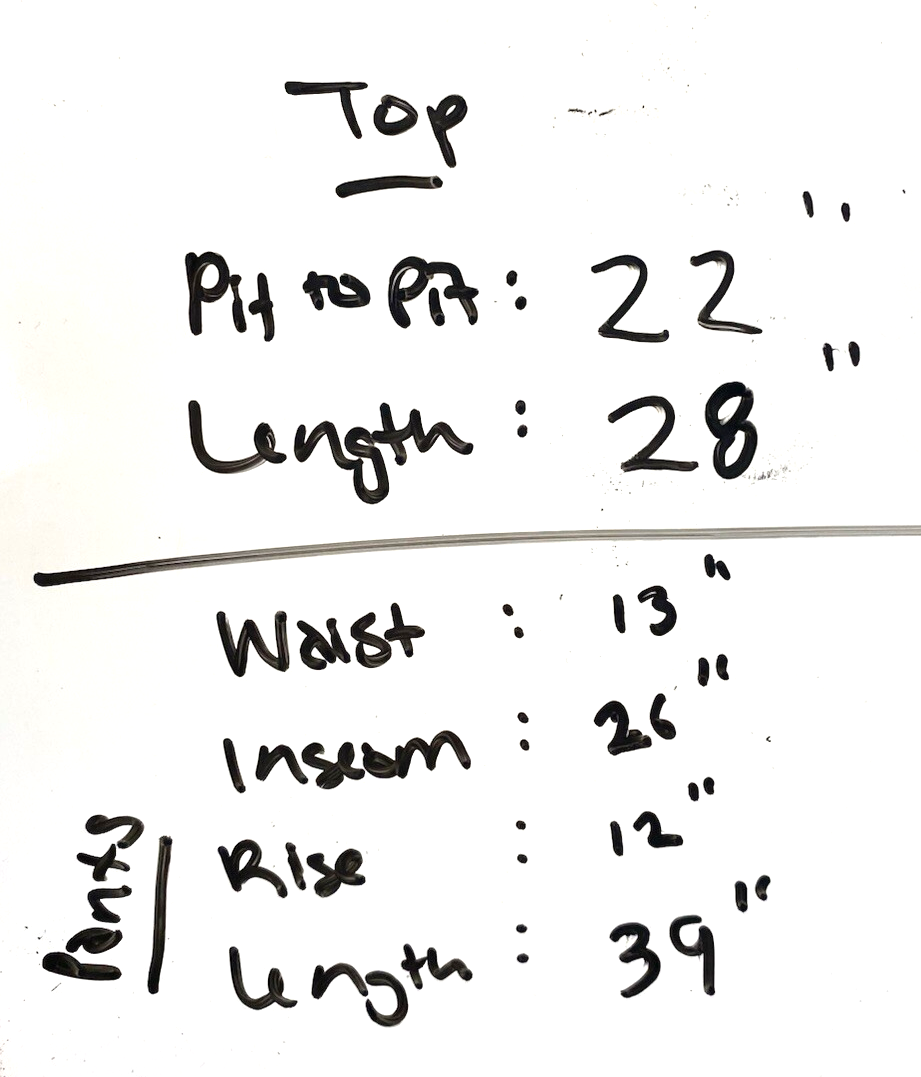 Top
Pit to Pit : 22"
Length : 28"
Waist : 13"
Inseam : 26"
Rise : 12"
Length : 39"
Pants